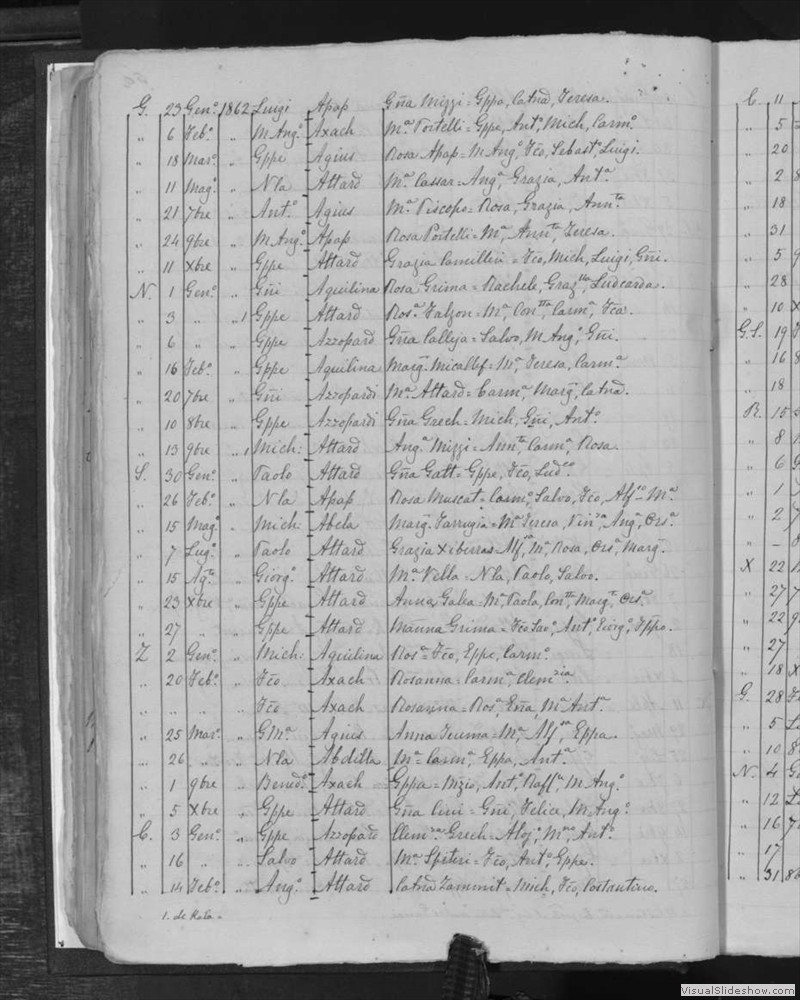 G. 23 Genº 1862 Luigi Apap Gña Mizzi = Gppa, Catñа, Teresa.
„ 6 Febº „ M.Angº Axach Mª Portelli = Gppe, Antº, Mich, Carmº.
„ 18 Marº „ Gppe Agius Rosa Apap = M.Angº, Fco, Sebastº, Luigi.
„ 11 Magº „ Nla Attard Mª Cassar = Angª, Grazia, Antª.
„ 21 7bre „ Antº Agius Mª Piscopo = Rosa, Grazia, Annta.
„ 24 9bre „ M.Angº Apap Rosa Portelli = Mª, Annta, Teresa.
„ 11 Xbre „ Gppe Attard Grazia Camilleri = Fco, Mich, Luigi, Gñi.
N. 1 Genº „ Gñi Aquilina Rosa Grima = Rachele, Grazlla, Ludgarda.
„ 3 „ „ Gppe Attard Rosª Falzon = Mª, Contta, Carmª, Fca.
„ 6 „ „ Gppe Azzopard Gña Calleja = Salvo, M.Angº, Gñi.
„ 16 Febº „ Gppe Aquilina Marg. Micallef = Mª, Teresa, Carmª.
„ 20 7bre „ Gñi Azzopardi Mª Attard = Carmª, Marg, Catñа.
„ 10 8bre „ Gppe Azzopardi Gña Grech = Mich, Gñi, Antº.
„ 13 9bre „ Mich: Attard Angª Mizzi = Annta, Carmª, Rosa.
S. 30 Genº „ Paolo Attard Gña Gatt = Gppe, Fco, Ludco.
„ 26 Febº „ Nla Apap Rosa Muscat = Carmº, Salvo, Fco, Alfso = Mª.
„ 15 Magº „ Mich: Abela Marg. Farrugia = Mª Teresa, Vinza, Angª, Orsª.
„ 7 Lugº „ Paolo Attard Grazia Xiberras = Alfsa, Mª Rosa, Orsª, Marg.
„ 15 Agto „ Giorgº Attard Mª Vella = Nla, Paolo, Salvo.
„ 23 Xbre „ Gppe Attard Anna Galea = Mª, Paola, Contta, Margta, Orsª.
„ 27 „ „ Gppe Attard Mañna Grima = Fco Saoº, Antº, Giorgº,
Z 2 Genº „ Mich: Aquilina Rosª = Fco, Gppe, Carmº.
„ 20 Febº „ Fco Axach Rosanna = Carmª, Clemzia.
„ „ „ Fco Axach Rosanna = Rosª, Gña, Mª Antª.
„ 25 Marº „ G.Mª Agius Anna = Mª, Alfsa, Gppa.
„ 26 „ „ Nla Abdilla Mª = Carmª, Gppa, Antª.
„ 1 9bre „ Benedº Axach Gppa = Nzio, Antº, Raffla, M.Angº.
„ 5 Xbre „ Gppe Attard Gña Cini = Gñi, Felice, M.Angº.
C. 3 Genº „ Gppe Azzopard Clemza Grech = Alojº, Mª, Antº.
„ 16 „ „ Salvo Attard Mª Spiteri = Fco, Antº, Gppe.
„ 14 Febº „ Angº Attard Catñа Zammit = Mich, Fco, Costantino.
1. de Kala =
C. 11
„ 5
„ 20
„ 2
„ 18
„ 31
„ 5
„ 28
„ 10
G.S. 19
„ 16
„ 18
R. 15
„ 8
„ 6
„ 1
„ 2
„ –
X 22
„ 27
„ 22
„ 27
„ 18
G. 28
„ 5
„ 10
N. 4
„ 12
„ 16
„ 17
„ 31
VisualSlideshow.com